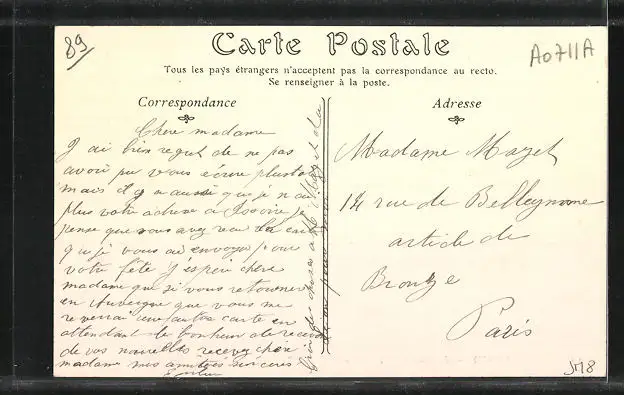 89
Carte Postale
A0711A
Tous les pays étrangers n'acceptent pas la correspondance au recto.
Se renseigner à la poste.
Correspondance
Adresse
Chère madame
J ai bien regret de ne pas
avoir pu vous écrire plustot
mais il y a aussi que je n ai
plus votre adresse a Issoire je
pense que vous avez recu la carte
que je vous ai envoyer pour
votre fete J'espère chère
madame que si vous retournez
en Auvergne que vous me
reverrai une autre carte en
attendant le bonheur de recevoir
de vos nouvelles recevez chère
madame mes amitiés sincères
bien des choses a M. Mazet
Madame Mazet
14 rue de Belleyme
article de
Bronze
Paris